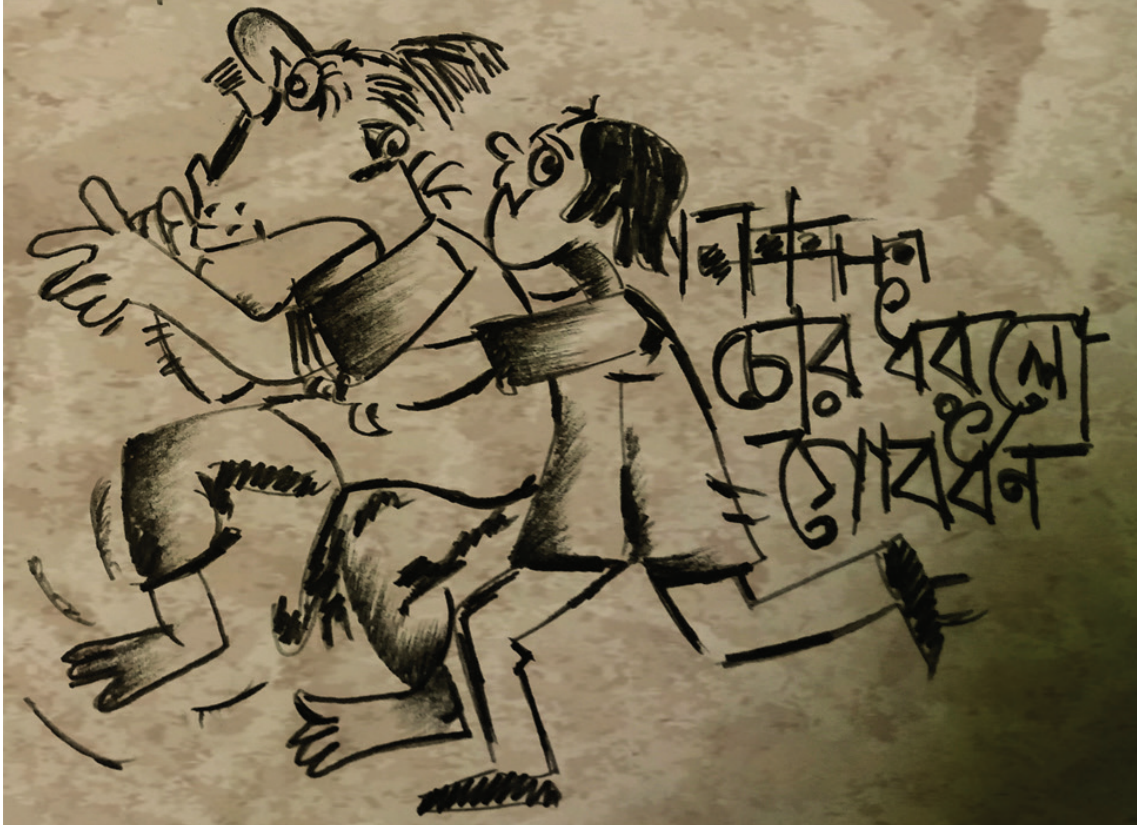 চোর ধরলো
গোবর্ধন